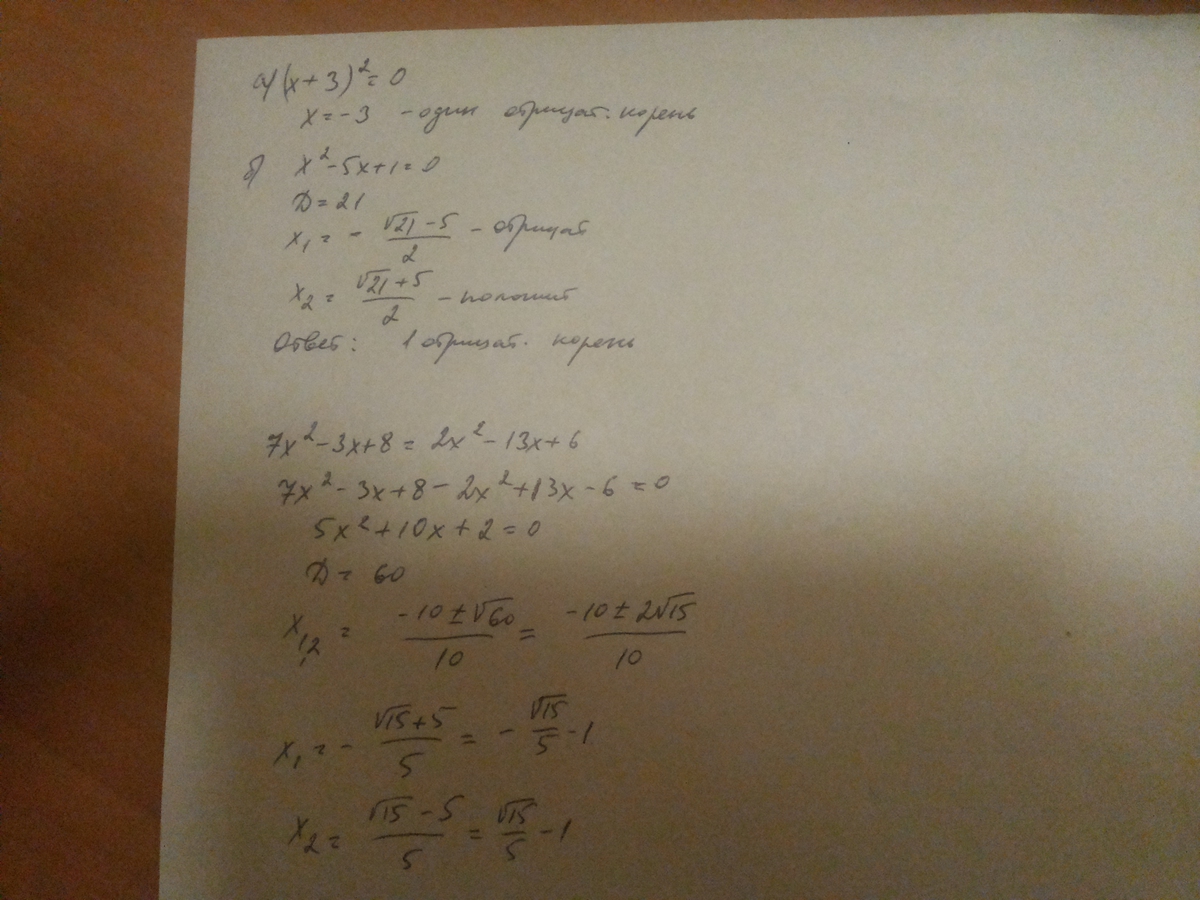 а) (x+3)² = 0
x = -3 - один отрицат. корень
б) x² - 5x + 1 = 0
D = 21
x₁ = - (√21 - 5)/2 - отрицат
x₂ = (√21 + 5)/2 - положит
Ответ: 1 отрицат. корень
7x² - 3x + 8 = 2x² - 13x + 6
7x² - 3x + 8 - 2x² + 13x - 6 = 0
5x² + 10x + 2 = 0
D = 60
x₁,₂ = (-10 ± √60)/10 = (-10 ± 2√15)/10
x₁ = - (√15 + 5)/5 = - √15/5 - 1
x₂ = (√15 - 5)/5 = √15/5 - 1